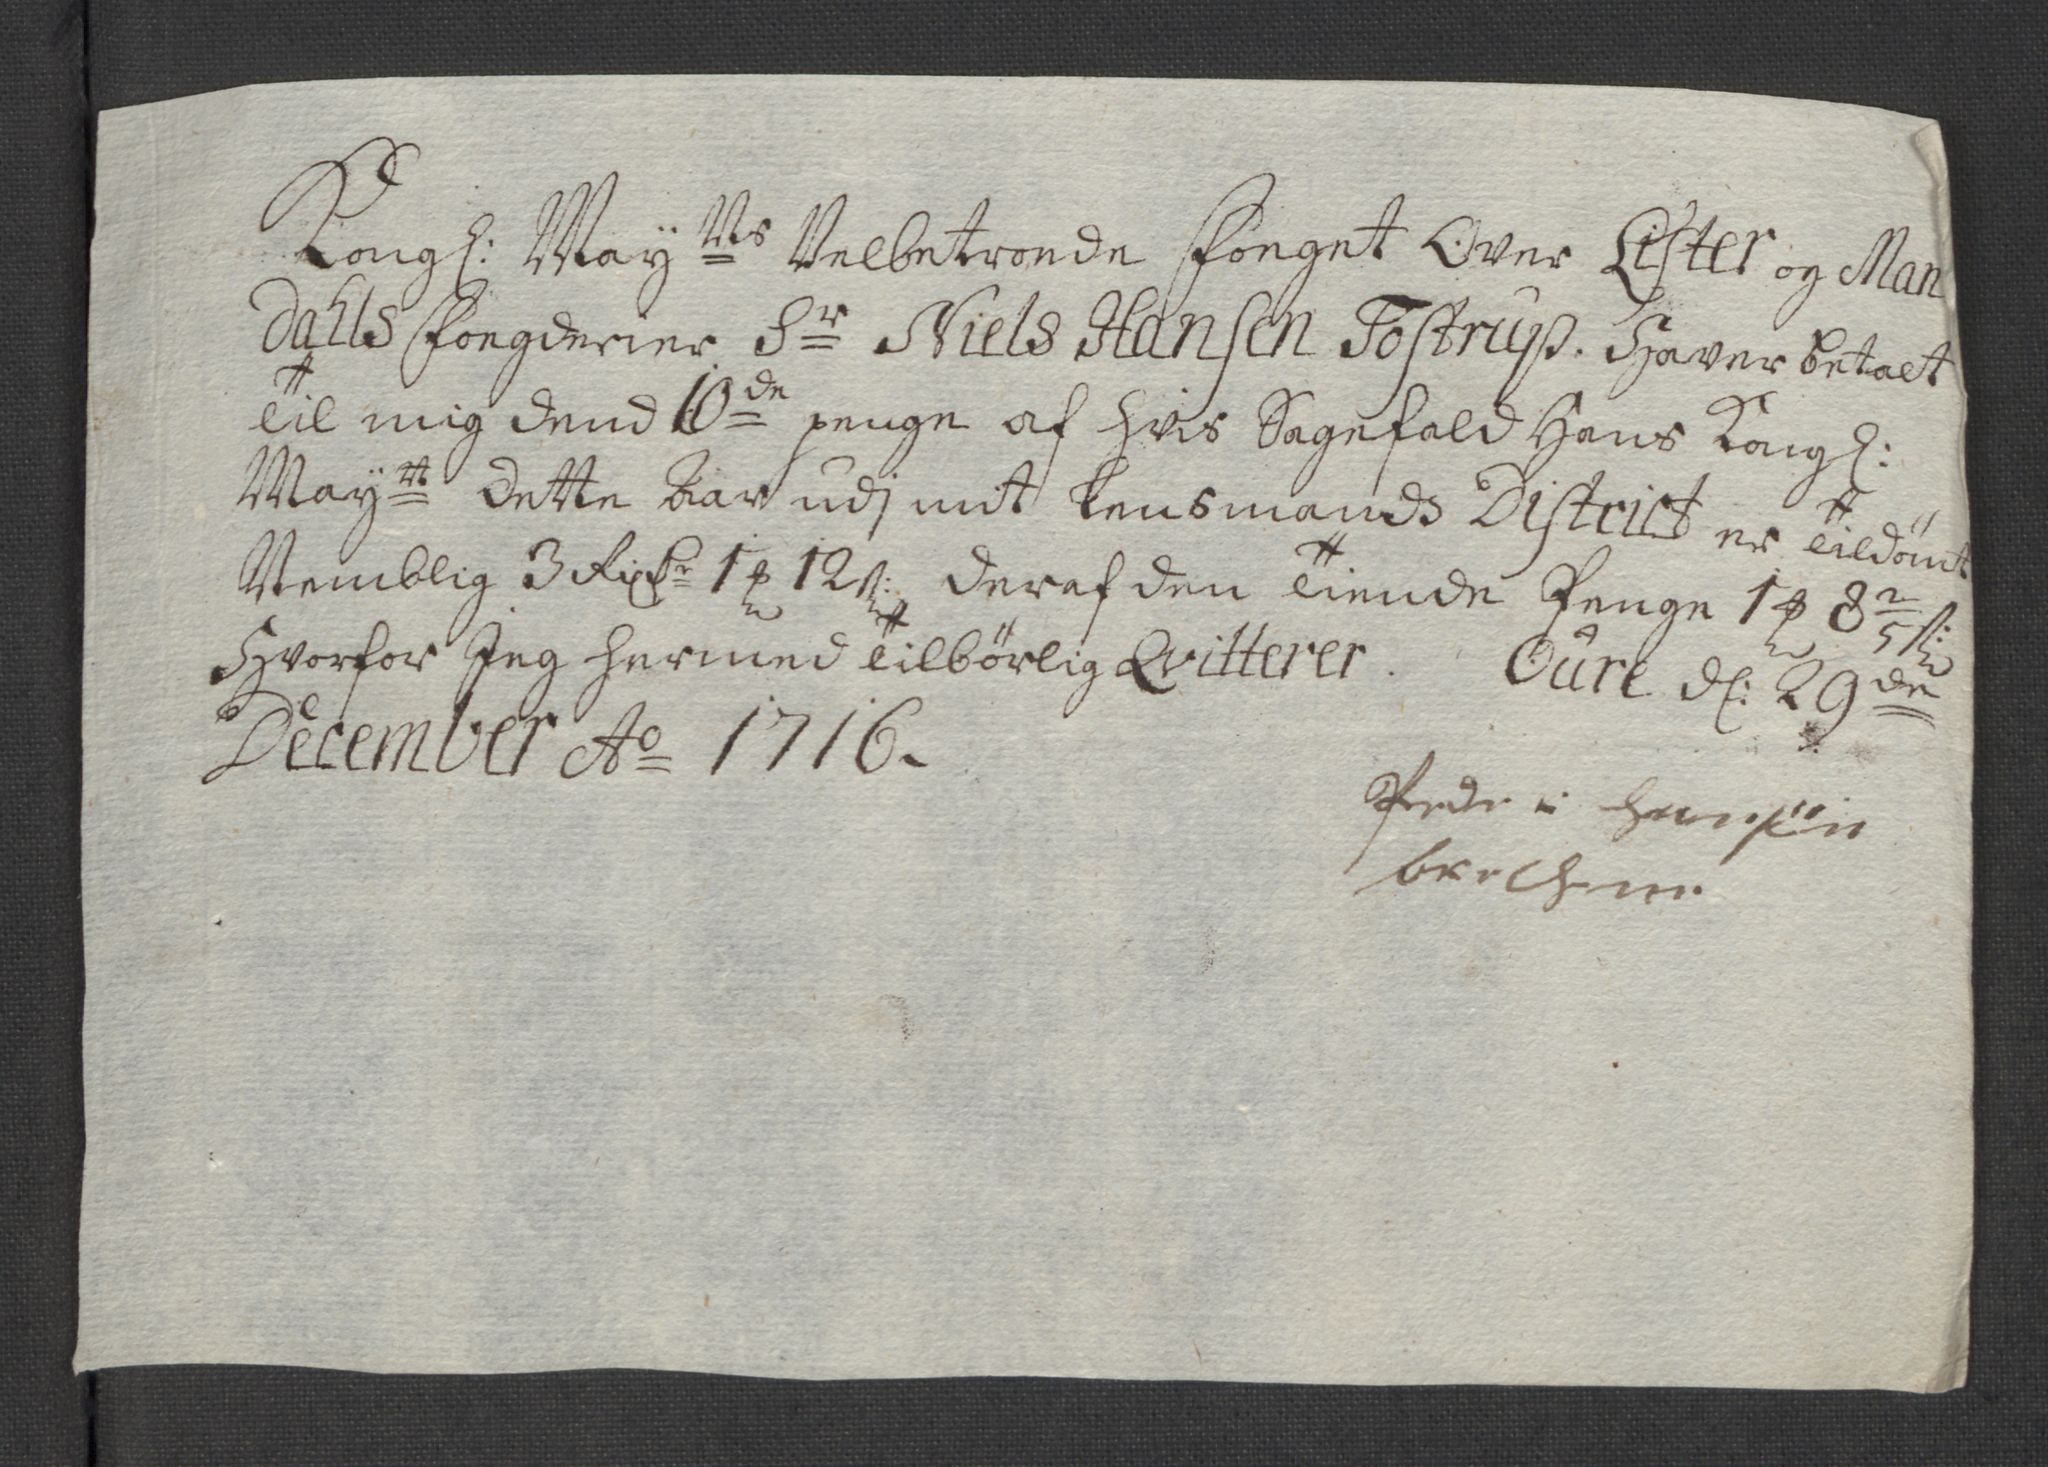 Kongl: May^tts Velbetroede Foeget Over Lister og Man
dahls Foegderier Hr Niels Hansen Tostrup. Haver betalt
til mig dend 10de penge af hvis Sagefald Hans Kongl:
Maytt dette Aar udj mit Lensmands District er tildömt
Nemblig 3 Rixdr 1 ℔ 12 s: deraf den tiende Penge 1 ℔ 8 2/5 s:
Hvorfor Jeg hermed tilbörlig Qvitterer. Oure dl: 29de
December Ao 1716.
Peder